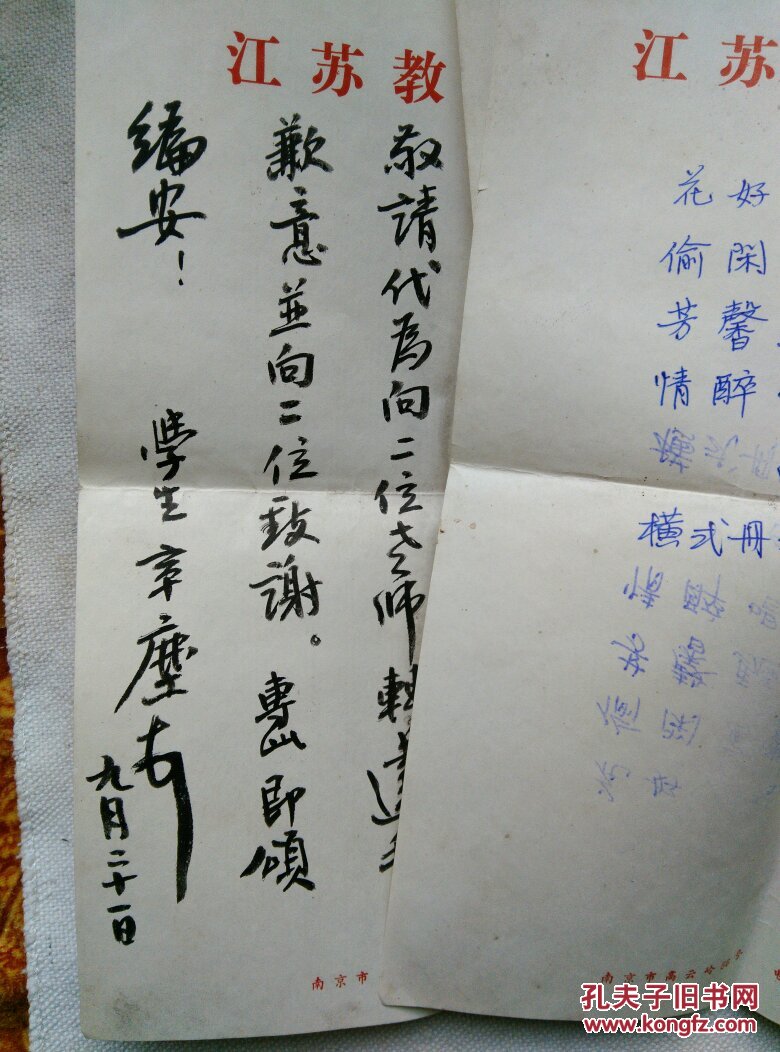 江苏教
敬請代为向二位老师轉達
歉意並向二位致謝。專此即頌
編安！
学生章塵
九月二十一日
南京市
江苏
花好
偷闲
芳馨
情醉
横式册
南京市高云岭56号
孔夫子旧书网
www.kongfz.com